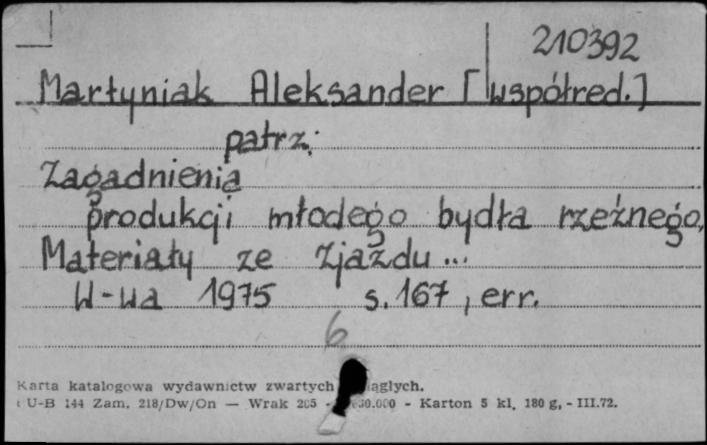 210392
Martyniak Aleksander [współred.]
patrz:
Zagadnienia
produkcji młodego bydła rzeźnego.
Materiały ze Zjazdu...
W-wa 1975 s. 167, err.
6
Karta katalogowa wydawnictw zwartych
U-B 144 Zam. 218/Dw/On — Wrak 205 - - Karton 5 kl. 180 g, - III.72.